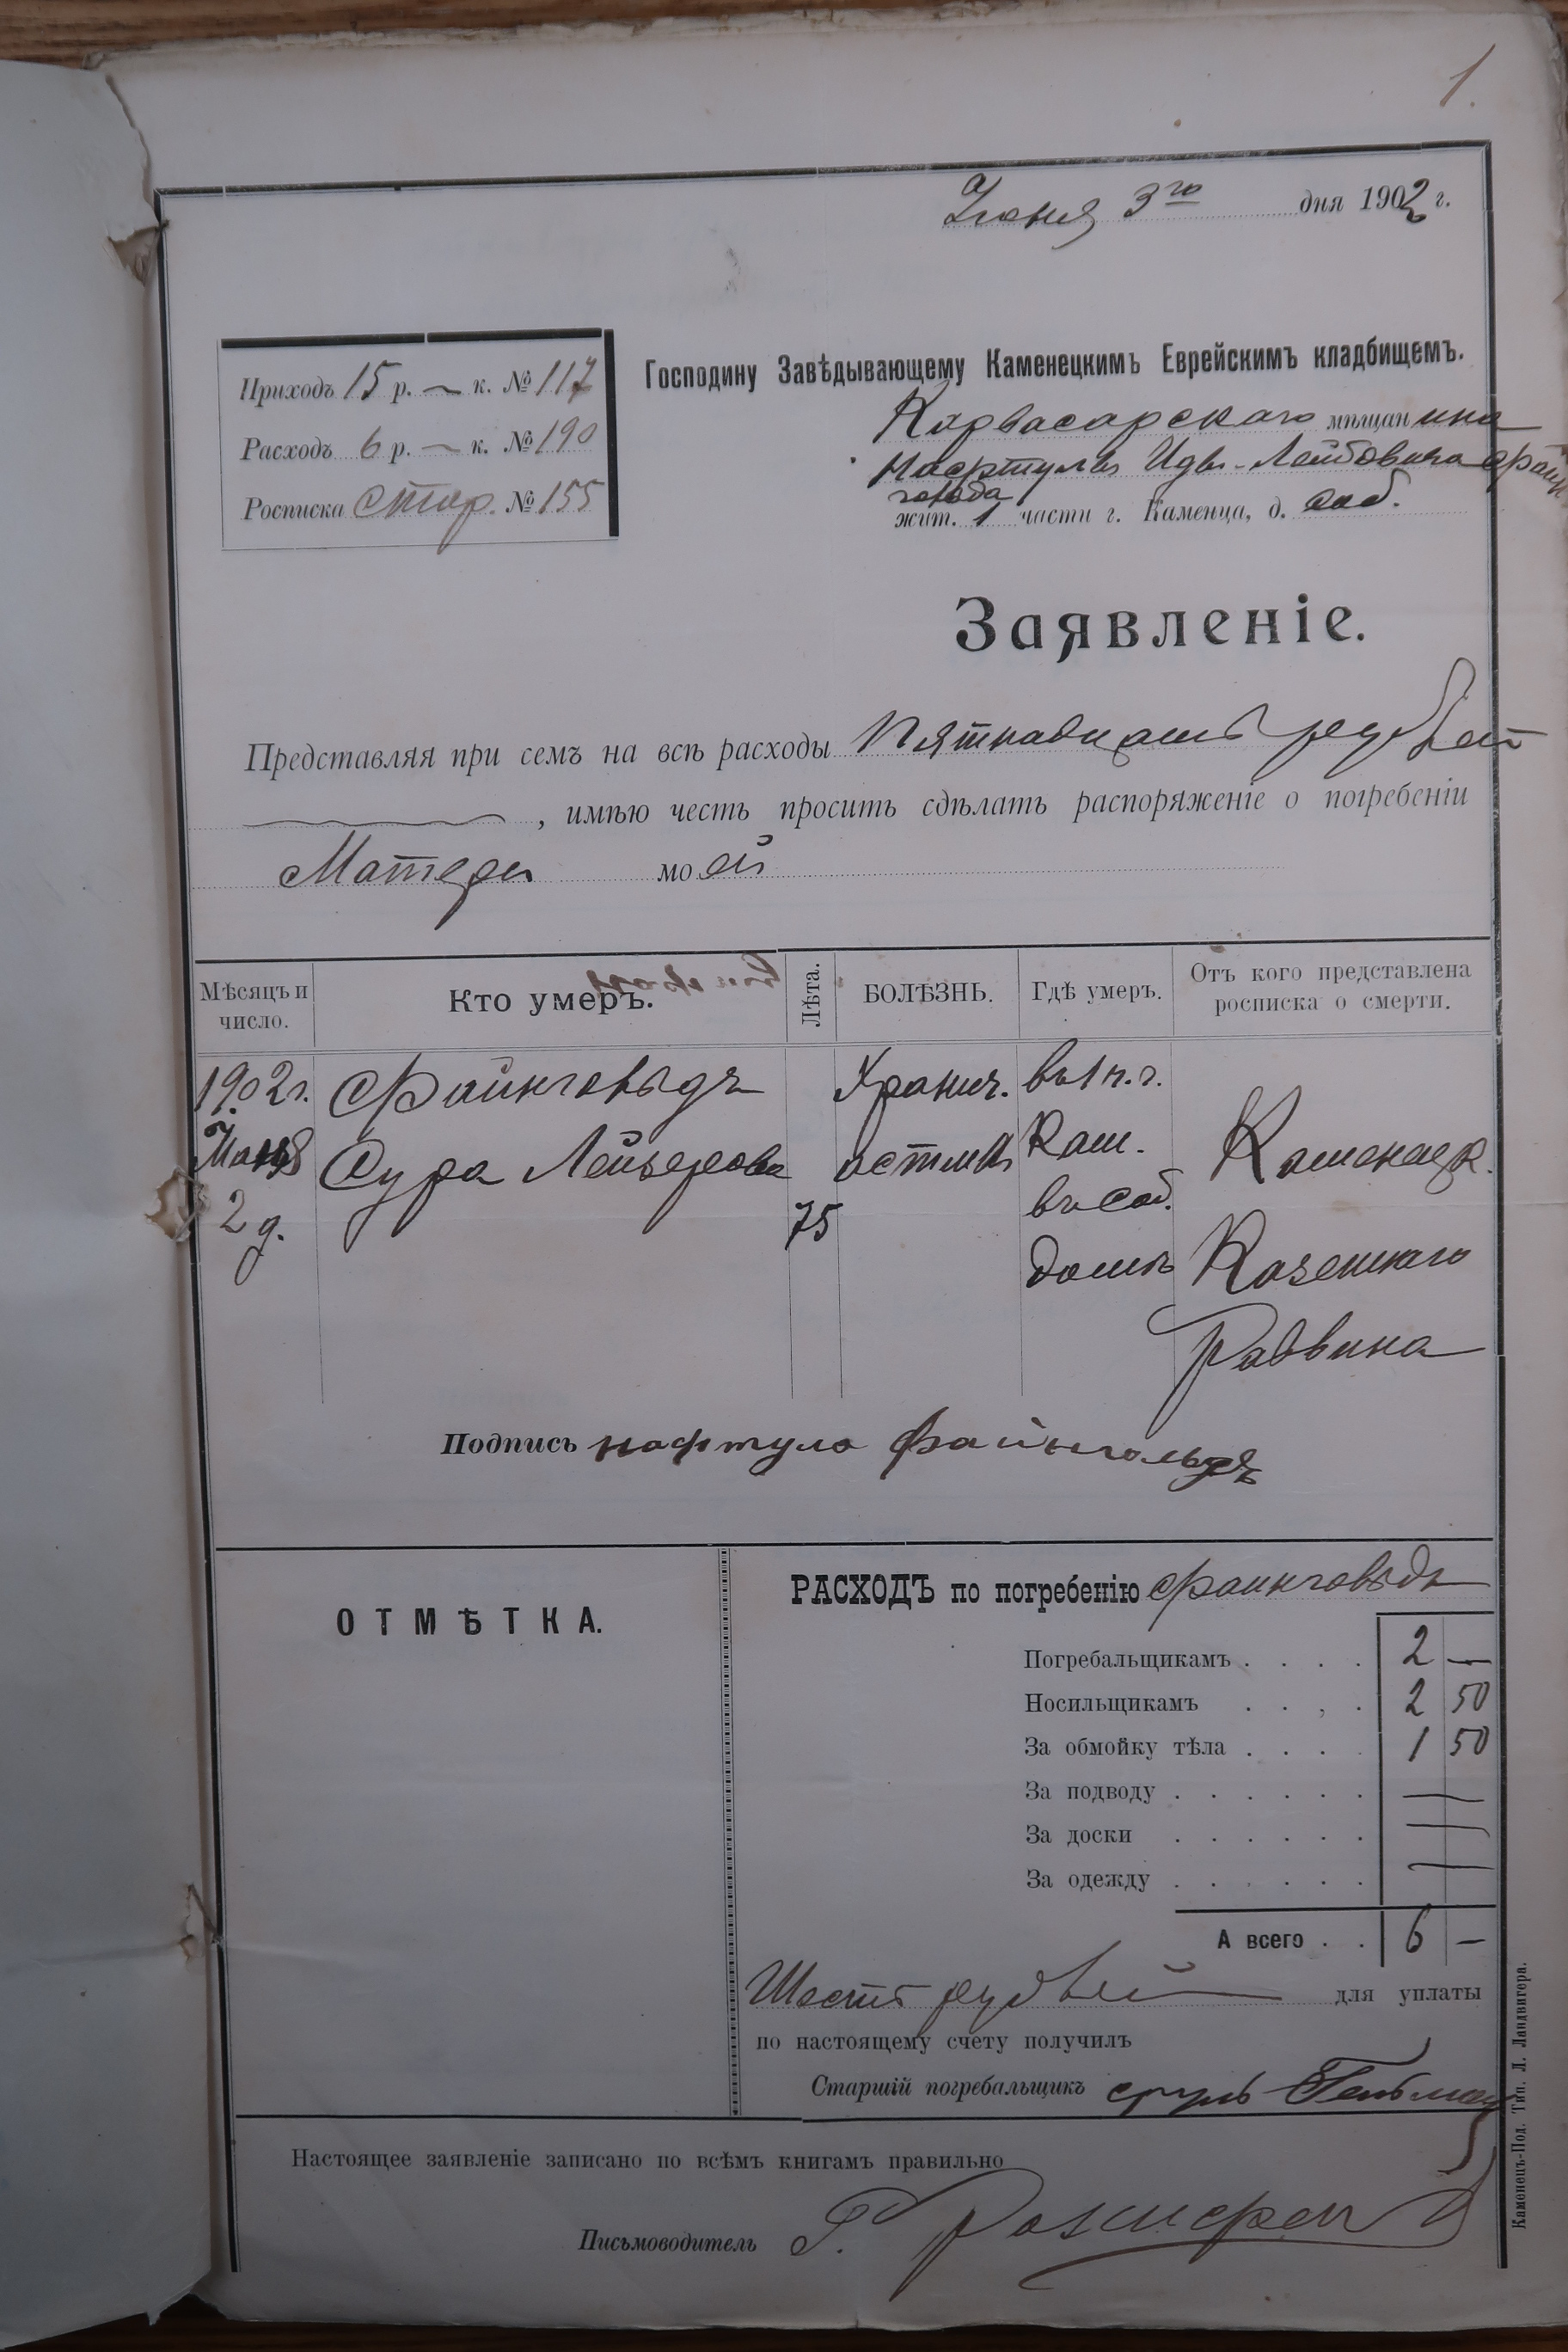 1.
Іюня 3го дня 1902 г.
Приходъ 15 р. — к. № 117
Расходъ 6 р. — к. № 190
Росписка стар. № 155
Господину Завѣдывающему Каменецкимъ Еврейскимъ кладбищемъ.
Карвасарскаго мѣщанина
Нафтулы Лейбовича
жит. 1 части г. Каменца, д. соб.
Заявленіе.
Представляя при семъ на всѣ расходы Пятнадцать рублей
, имѣю честь просить сдѣлать распоряженіе о погребеніи
Матери моей
Мѣсяцъ и число.
Кто умеръ.
Лѣта.
БОЛѢЗНЬ.
Гдѣ умеръ.
Отъ кого представлена росписка о смерти.
1902г. Июня 2 д.
Файнгольдъ
Сура Лейзерова
75
Хронич. астма
въ 1 ч. г. Кам. въ соб. домѣ
Каменецк. Казеннаго Раввина
Подпись нафтула файнгольдъ
ОТМѢТКА.
РАСХОДЪ по погребенію Файнгольдъ
Погребальщикамъ . . . . 2 —
Носильщикамъ . . , . 2 50
За обмойку тѣла . . . . 1 50
За подводу . . . . . . —
За доски . . . . . . —
За одежду . . . . . . —
А всего . . 6 —
Шесть рублей для уплаты
по настоящему счету получилъ
Старшій погребальщикъ сруль
Настоящее заявленіе записано по всѣмъ книгамъ правильно
Письмоводитель
Каменецъ-Под. Тип. Л. Ландвигера.